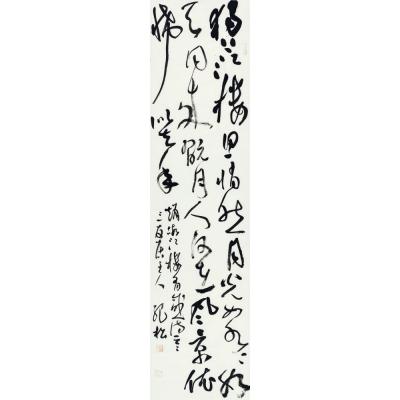 独上江楼思悄然月光如水水如
天同来翫月人何在风景依
稀似去年
赵嘏江楼有感诗
主人